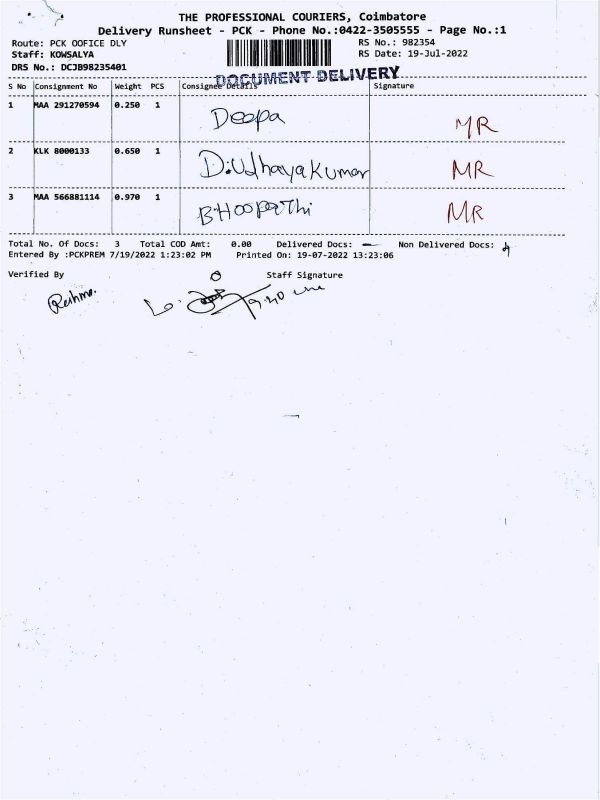 THE PROFESSIONAL COURIERS, Coimbatore
Delivery Runsheet - PCK - Phone No.:0422-3505555 - Page No.:1
Route: PCK OOFICE DLY RS No.: 982354
Staff: KOWSALYA RS Date: 19-Jul-2022
DRS No.: DCJB98235401
DOCUMENT DELIVERY
S No Consignment No Weight PCS Consignee Details Signature
1 MAA 291270594 0.250 1 Deepa MR
2 KLK 8000133 0.650 1 D.Udhayakumar MR
3 MAA 566881114 0.970 1 BHOOPATHI MR
Total No. Of Docs: 3 Total COD Amt: 0.00 Delivered Docs: — Non Delivered Docs:
Entered By :PCKPREM 7/19/2022 1:23:02 PM Printed On: 19-07-2022 13:23:06
Verified By Staff Signature